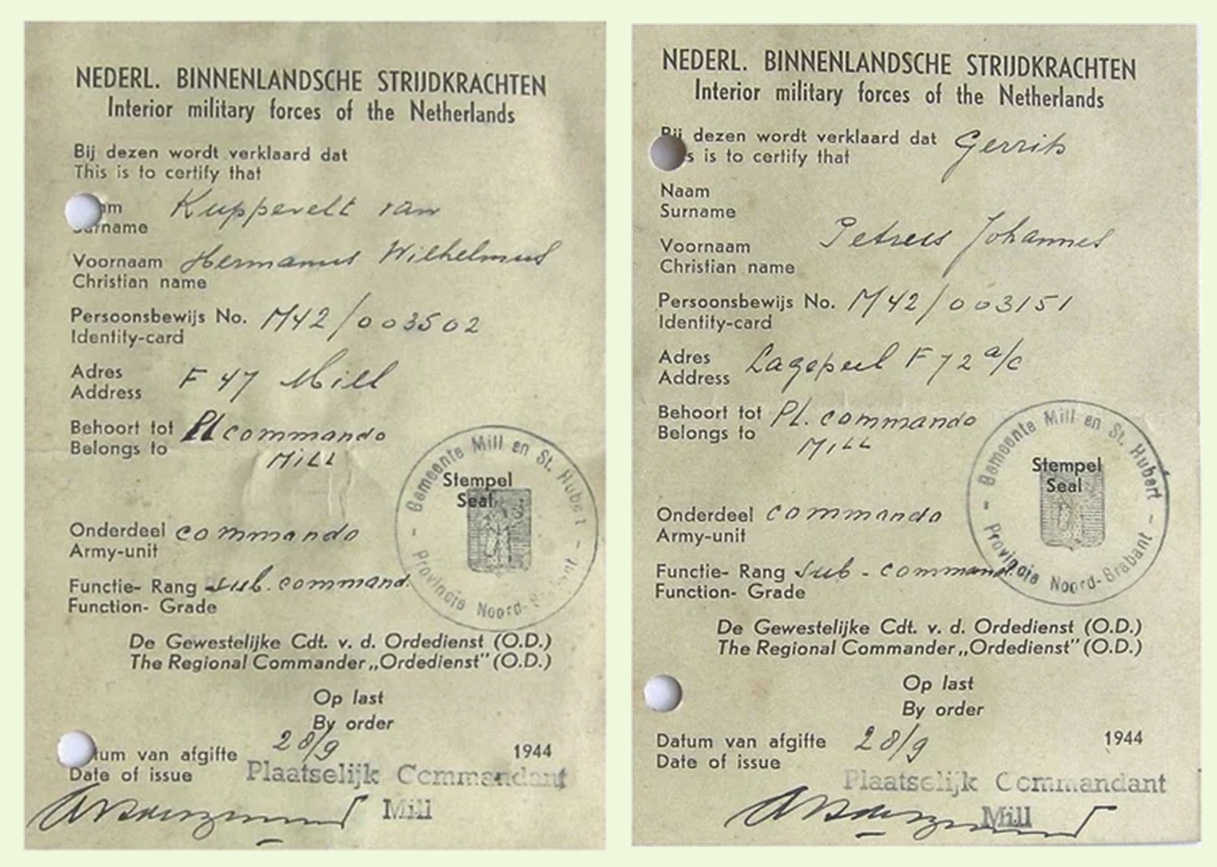 NEDERL. BINNENLANDSCHE STRIJDKRACHTEN
Interior military forces of the Netherlands
Bij dezen wordt verklaard dat
This is to certify that
Kuppevelt van
Surname
Voornaam Hermanus Wilhelmus
Christian name
Persoonsbewijs No. M42/003502
Identity-card
Adres F 47 Mill
Address
Behoort tot Pl commando
Belongs to Mill
Stempel
Seal
Gemeente Mill en St. Hubert
Provincie Noord-Brabant
Onderdeel commando
Army-unit
Functie- Rang sub. command.
Function- Grade
De Gewestelijke Cdt. v. d. Ordedienst (O.D.)
The Regional Commander „Ordedienst" (O.D.)
Op last
By order
Datum van afgifte 28/9 1944
Date of issue
Plaatselijk Commandant
Mill
NEDERL. BINNENLANDSCHE STRIJDKRACHTEN
Interior military forces of the Netherlands
Bij dezen wordt verklaard dat Gerrits
This is to certify that
Naam
Surname
Voornaam Petrus Johannes
Christian name
Persoonsbewijs No. M42/003151
Identity-card
Adres Lagepeel F 72 a/c
Address
Behoort tot Pl. commando
Belongs to Mill
Stempel
Seal
Gemeente Mill en St. Hubert
Provincie Noord-Brabant
Onderdeel commando
Army-unit
Functie- Rang sub - command.
Function- Grade
De Gewestelijke Cdt. v. d. Ordedienst (O.D.)
The Regional Commander „Ordedienst" (O.D.)
Op last
By order
Datum van afgifte 28/9 1944
Date of issue
Plaatselijk Commandant
Mill